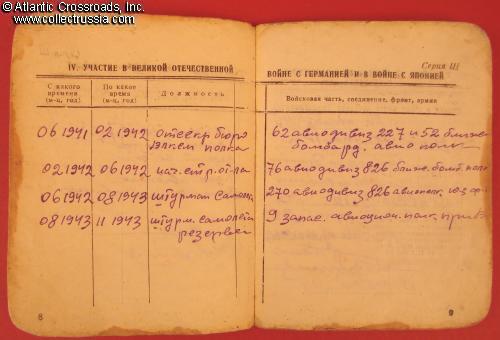 © Atlantic Crossroads, Inc.
www.collectrussia.com
IV. УЧАСТИЕ В ВЕЛИКОЙ ОТЕЧЕСТВЕННОЙ
С какого времени (м-ц, год)
По какое время (м-ц, год)
Должность
06 1941 02 1942 бюро
полка
02 1942 06 1942 нач.
06 1942 08 1943 штурман самол.
08 1943 11 1943 штурм. самолета
резерва
8
Серия Щ
ВОЙНЕ С ГЕРМАНИЕЙ И В ВОЙНЕ С ЯПОНИЕЙ
Войсковая часть, соединение, фронт, армия
62 авиодивиз 227 и 52 ближне
бомбард. авио полк
76 авиодивиз 826 ближ. бомб. полк
270 авиодивиз 826 авиополк юз. фр.
9 запас. авиацион. полк
9